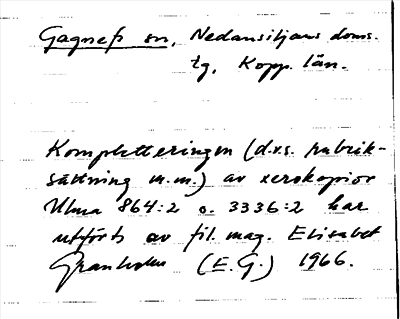 Gagnefs sn, Nedansiljans doms-
tg, Kopp. län.
Kompletteringen (d.v.s. rubrik-
sättning m.m.) av xerokopior
Ulma 864:2 o. 3336:2 har
utförts av fil. mag. Elisabet
Granholm (E.G.) 1966.